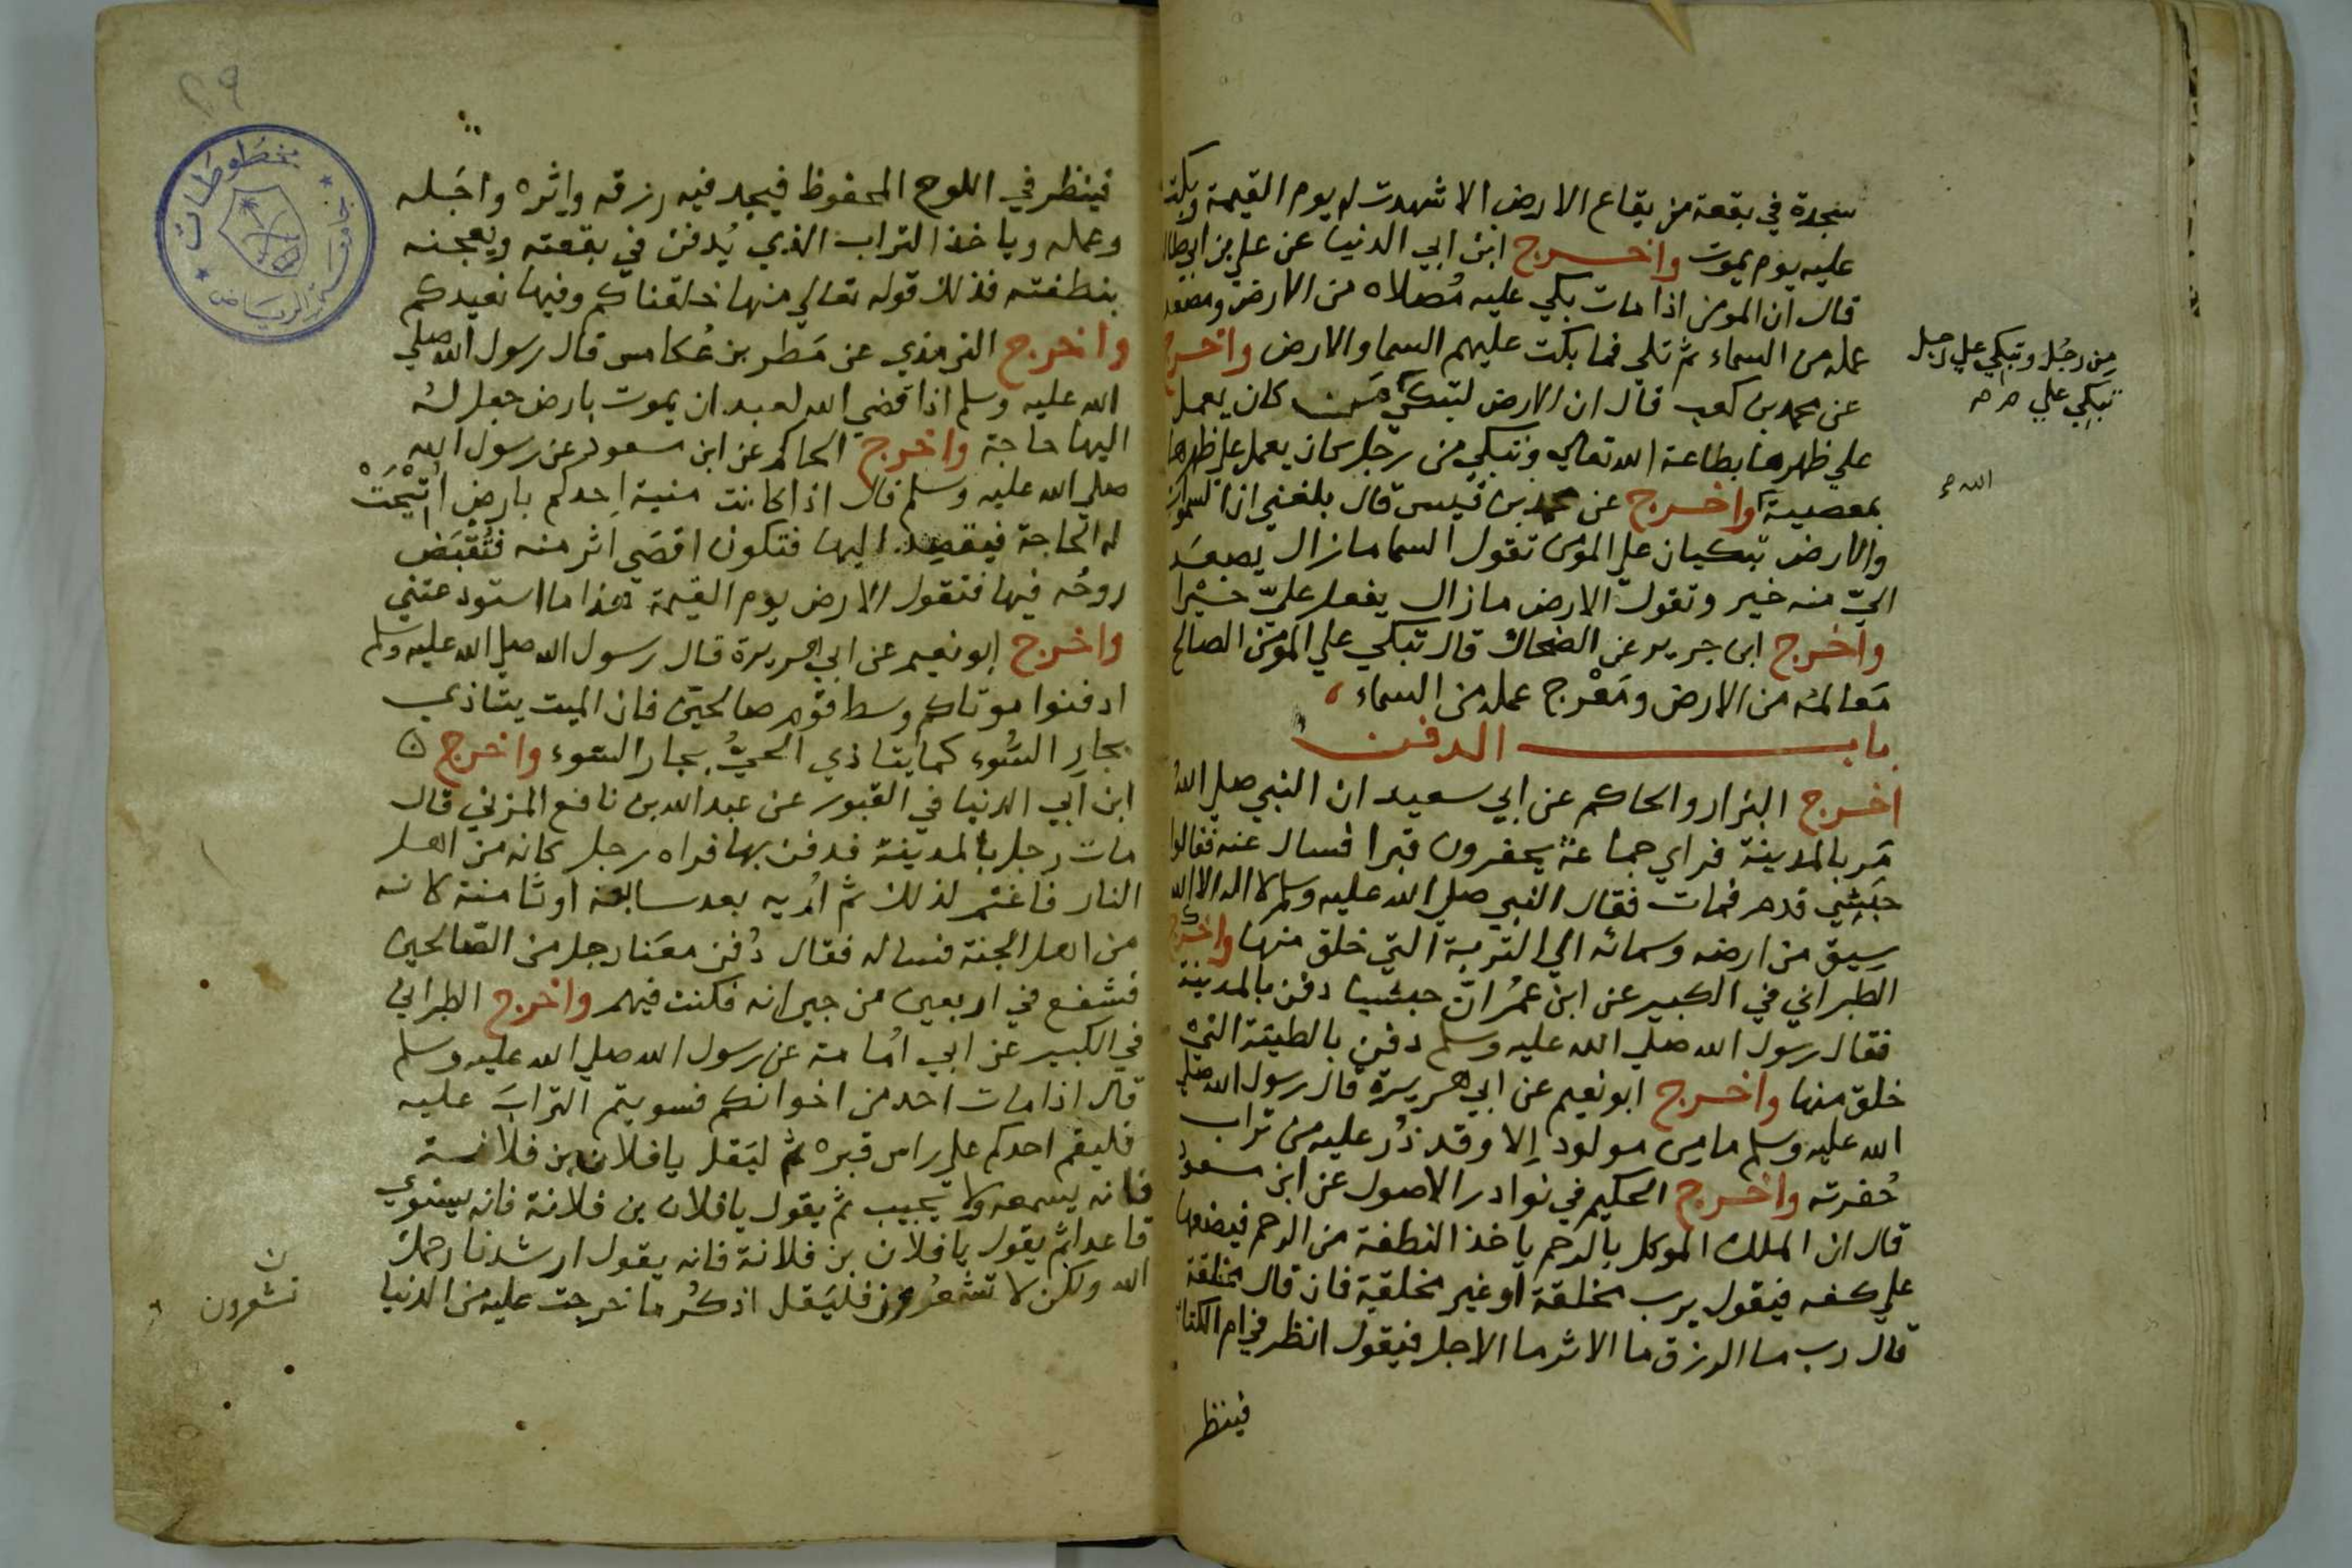 سجدة في بقعة من بقاع الارض الا شهدت له يوم القيمة وبكت
عليه يوم يموت واخرج ابن ابي الدنيا عن علي بن ابي طال
قال ان المومن اذا مات بكي عليه مُصلاه من الارض ومصعد
عمله من السماء ثم تلي فما بكت عليهم السما والارض واخرج
عن محمد بن كعب قال ان الارض لتبكي مَن كان يعمل
علي ظهرها بطاعة الله تعالي وتبكي من رجل كان يعمل علي ظهرها
بمعصية واخرج عن محمد بن قيس قال بلغني ان السموات
والارض تبكيان علي المومن تقول السما ما زال يصعَد
اليّ منه خير وتقول الارض ما زال يفعل عليّ خيْرا
واخرج ابن جرير عن الضحاك قال تبكي علي المومن الصالح
مَعالمه من الارض ومَعْرج عمله من السماء
باب الدفن
اخرج البزار والحاكم عن ابي سعيد ان النبي صلي اللهُ
مَر بالمدينة فراي جماعةً يحفرون قبرا فسال عنه فقالوا
حبَشِي قدم فمات فقال النبي صلي الله عليه وسلم لا اله الا الله
سِيق من ارضه وسمائه الي التربة التي خلق منها واخرج
الطبراني في الكبير عن ابن عمُر انّ حبشيا دفن بالمدينة
فقال رسول الله صلي الله عليه وسلم دفن بالطينة التي
خلق منها واخرج ابو نعيم عن ابي هريرة قال رسول الله صلي
الله عليه وسلم ما من مولود إلا وقد ذُر عليه من تراب
حُفرته واخرج الحكيم في نوادر الاصول عن ابن مسعود
قال ان الملك الموكل بالرحم ياخذ النطفة من الرحم فيضعها
علي كفه فيقول يرب مخلقة او غير مخلقة فان قال مخلقة
قال رب ما الرزق ما الاثر ما الاجل فيقول انظر في ام الكتاب
فينظر
من رجُل وتبكي علي رجل
تبكي علي
الله
٢٩
مخطوطات
جامعة الرياض
فينظر في اللوح المحفوظ فيجد فيه رزقه واثره واجَله
وعمله وياخذ التراب الذي يُدفن في بقعته ويعجنه
بنطفته فذلك قوله تعالي منها خلقناكم وفيها نعيدكم
واخرج الترمذي عن مَطر بن عُكامس قال رسول الله صلي
الله عليه وسلم اذا قضي الله لعبد ان يموت بارض جعل لهُ
اليها حاجة واخرج الحاكم عن ابن مسعود عن رسول الله
صلي الله عليه وسلم قال اذا كانت منية احدكم بارض اُتيْحَتْ
له الحاجة فيقصد اليها فتكون اقصَي اثر منه فتُقْبَض
روحُه فيها فتقول الارض يوم القيمة هذا ما استودعتني
واخرج ابو نعيم عن ابي هريرة قال رسول الله صلي الله عليه وسلم
ادفنوا موتاكم وسط قوم صالحين فان الميت يتاذي
بجارِ السُوء كما يتاذي الحيُّ بجار السوء واخرج
ابن ابي الدنيا في القبور عن عبد الله بن نافع المزني قال
مات رجل بالمدينة فدفن بها فراه رجل كانه من اهل
النار فاغتم لذلك ثم اُريه بعد سابعة او ثامنة كانه
من اهل الجنة فساله فقال دُفن معَنا رجل من الصّالحين
فشفع في اربعين من جيرانه فكنت فيهم واخرج الطبراني
في الكبير عن ابي اُمامة عن رسول الله صلي الله عليه وسلم
قال اذا مات احد من اخوانكم فسويتم الترابَ عليه
فليقم احدكم علي راس قبره ثم ليَقل يا فلان بن فلانة
فانه يسمعه ولا يجيب ثم يقول يا فلان بن فلانة فانه يستوي
قاعدا ثم يقول يا فلان بن فلانة فانه يقول ارشدنا رحمك
الله ولكن لا تشعُرون فليَقل اذكُر ما خرجت عليه من الدنيا
ن
تشعرون